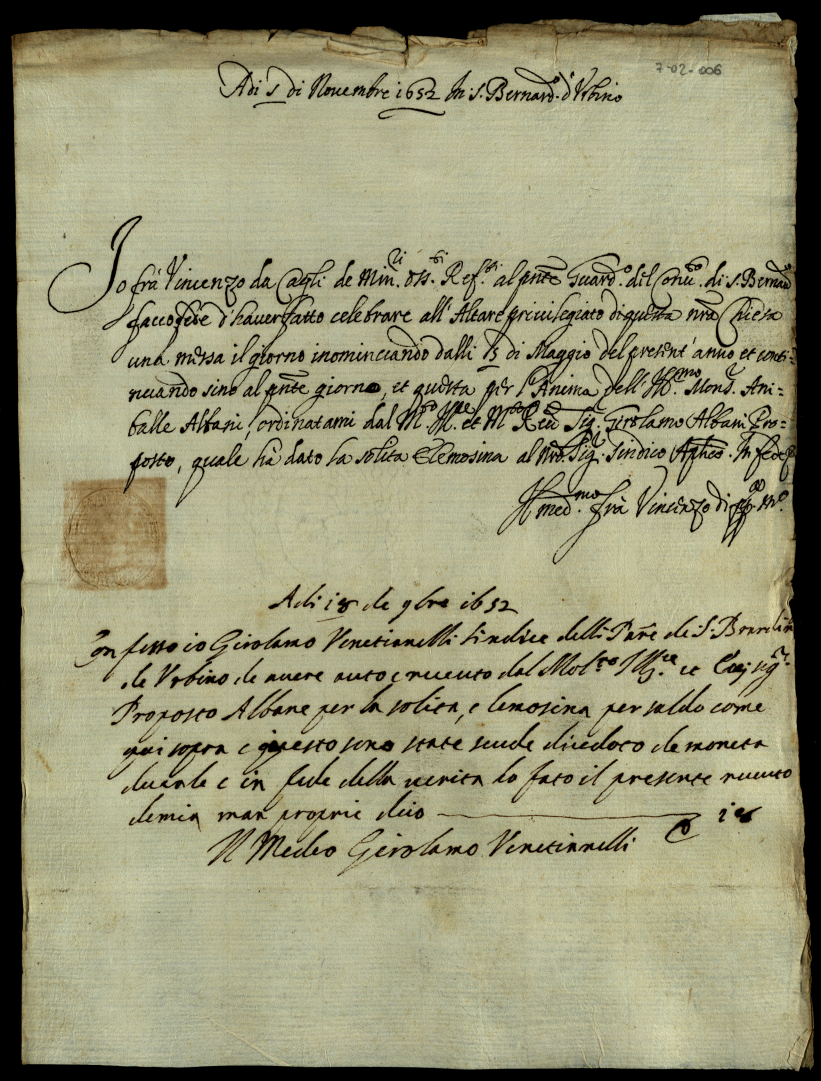 7-02-006
Adi 5 di Novembre 1652 In S. Bernard.º d'Urbino
Io frà Vincenzo da Cagli de Min.ri Oss.ti Ref.ti al pnte Guard.º dil Conu.to di S. Bernard.º
faccio fede d'hauer fatto celebrare all'Altare priuilegiato di questa nrã Chiesa
una messa il giorno inominciando dalli 15 di Maggio del present'anno et conti-
nuando sino al pnte giorno, et questa per l'Anima dell'Ill.mo Mons.r Ani-
balle Albani, ordinatami dal M.to Ill.re et M.to Reu.do Sig.r Girolamo Albani Pro-
posto, quale hà dato la solita Elemosina al nrõ Sig.r Sindico In fede
Il med.mo frà Vincenzo di m.º
Adi 18 de 9bre 1652
Confesso io Girolamo Venetianelli sindice delli Pare de S. Bnardin
de Vrbino de auere auto e riceuto dal Mol.to Ill.re et sig.r
Proposto Albane per la solita, e lemosina per saldo come
qui sopra e questo sono state scude diciedoto de moneta
ducale e in fede della uerita lo fato il presente riceuto
demia man proprie dico 18
Il Medeo Girolamo Venetianelli